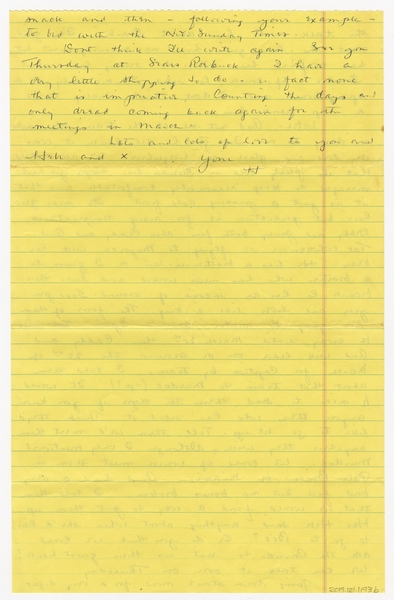 snack and then - following your example -
to bed with the N.Y. Sunday Times.
Dont think I'll write again. See you
Thursday at Sears Roebuck. I have a
very little shopping to do - in fact none
that is imperative. Counting the days and
only dread coming back again for the
meetings in March.
Lots and lots of love to you and
and x Yours
H
2014.121.1.193b